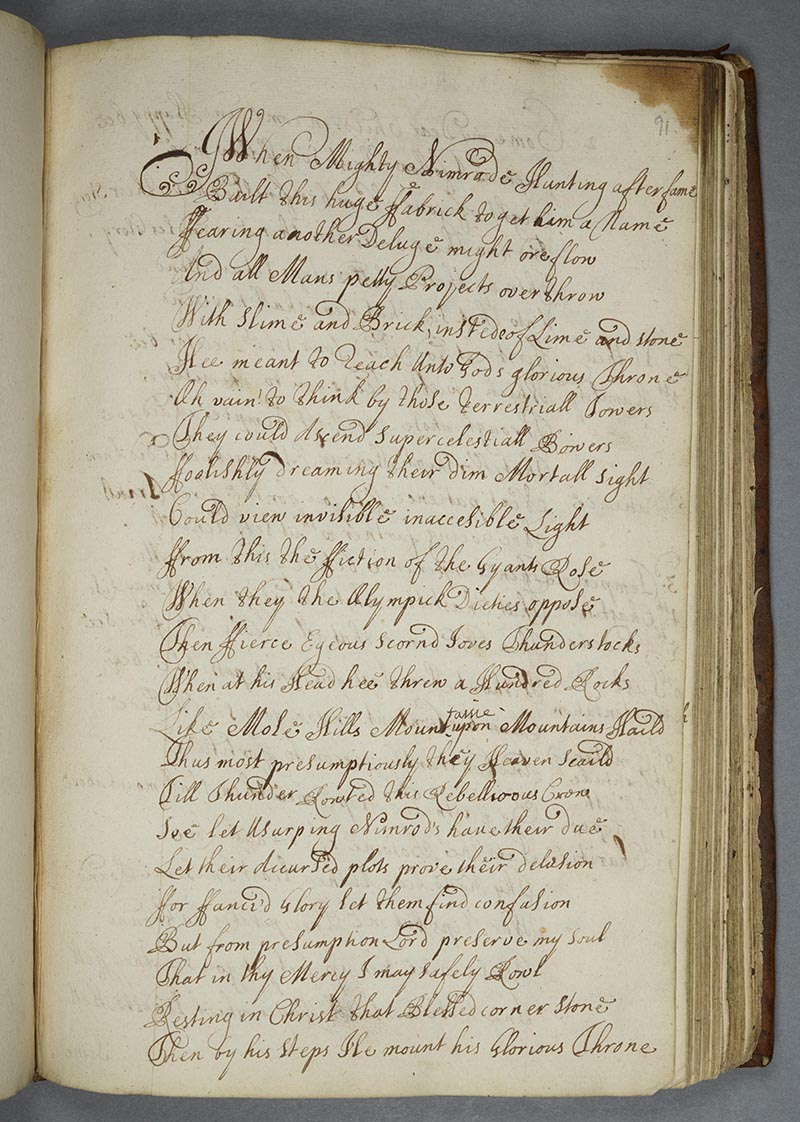 91
When Mighty Nimrode Hunting after fame
Built this huge ffabrick to get him a Name
ffearing another Deluge might oreflow
And all Mans petty Projects overthrow
With slime and Brick, insted of Lime and stone
Hee meant to Reach Unto Gods glorious Throne
Oh vain! to think by those terrestriall Towers
They could Ascend supercelestiall Bowers
ffoolishly dreaming their dim Mortall sight
Could view invisible inaccesible Light
ffrom this the ffiction of the Gyants Rose
When they the Olympick Dieties oppose
Then ffierce Egeous scornd Joves Thunderstocks
When at his Head hee threw a Hundred Rocks
Like Mole Hills Mount upon Mountains Haild
Thus most presumptiously they Heaven scaild
Till Thunder Rowted this Rebellious Crew
See let Usurping Nimrod's have their due
Let their accursed plots prove their delusion
ffor ffanci'd Glory let them find confusion
But from presumption Lord preserve my soul
That in thy Mercy I may safely Rowl
Resting in Christ that Blessed corner stone
Then by his steps Ile mount his Glorious Throne